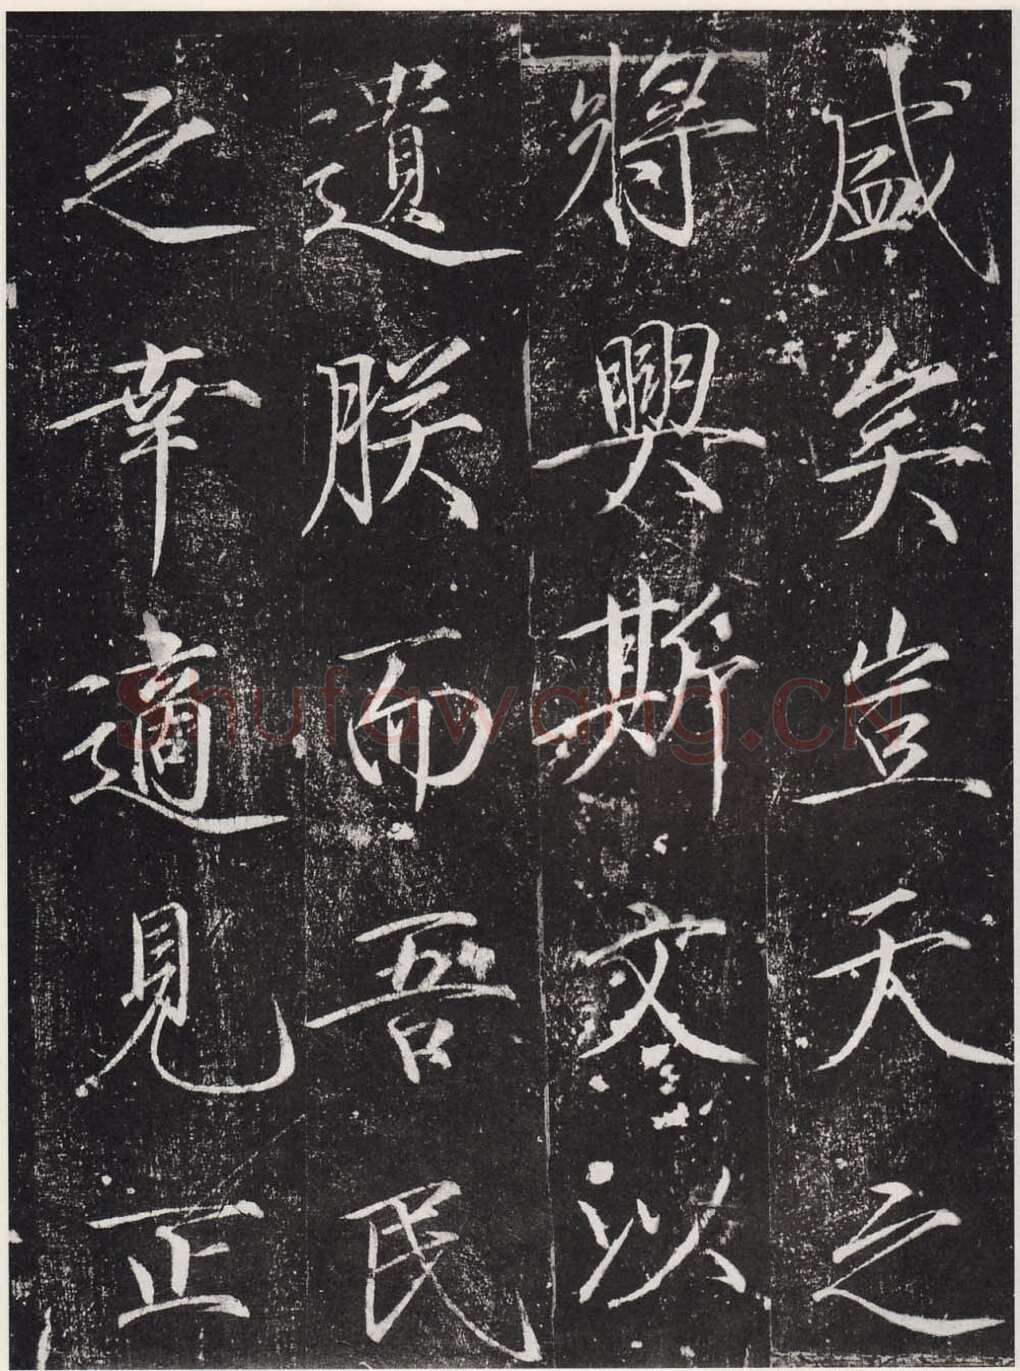 盛矣豈天之
將興斯文以
遺朕而吾民
之幸適見正
Shufawang.CN